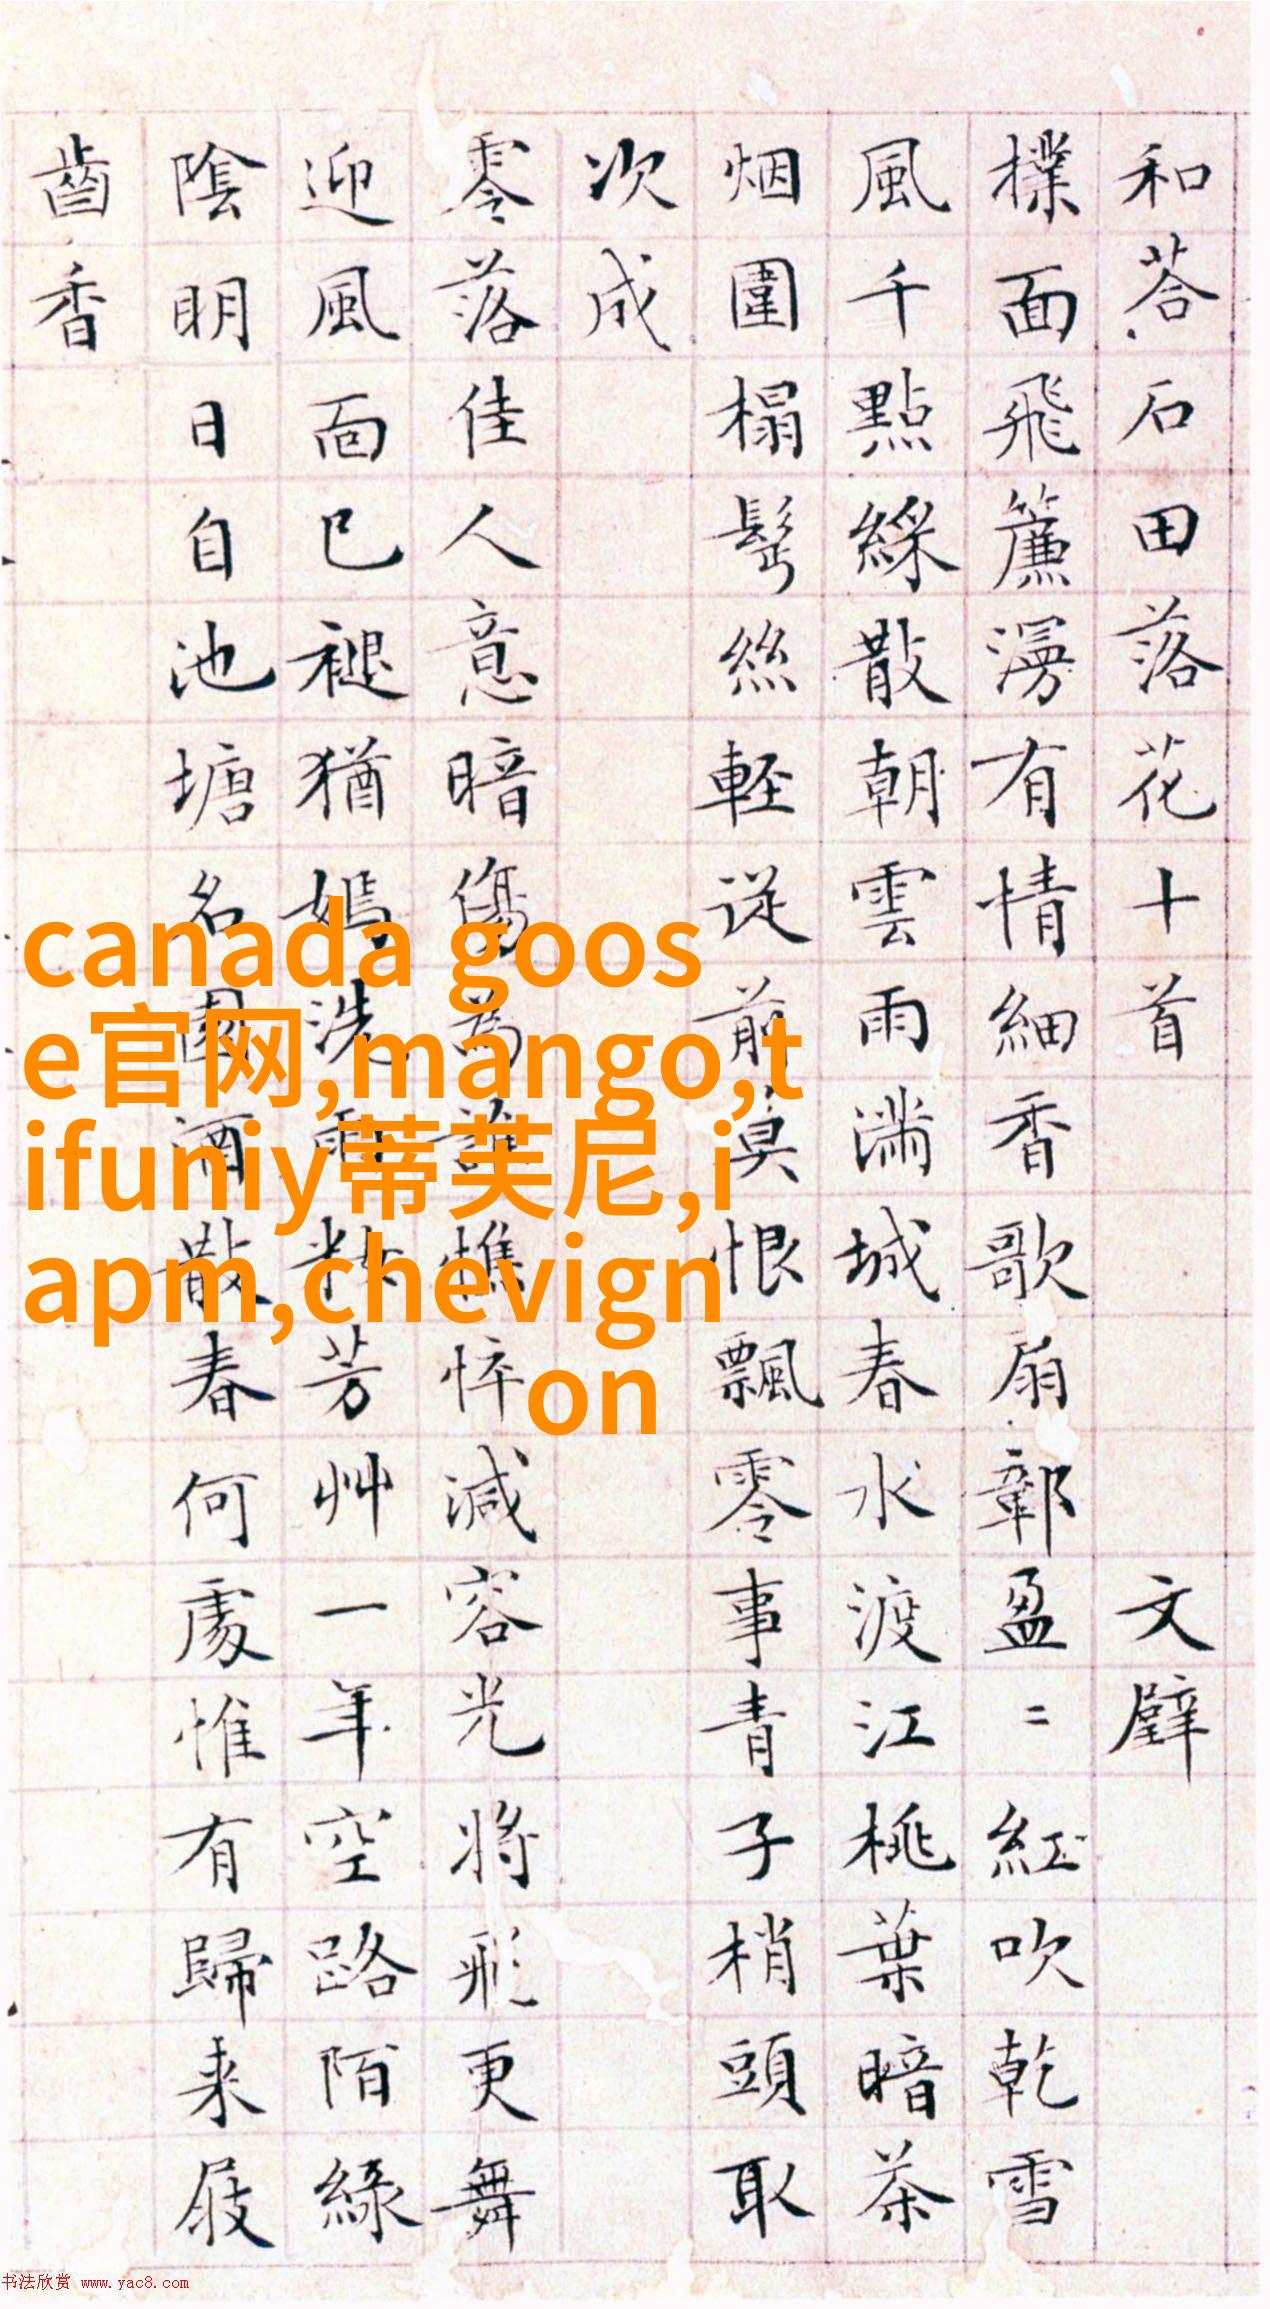 和荅石田落花十首 文壁
撲面飛簾漫有情細香歌扇鄣盈〻紅吹乾雪
風千點綵散朝雲雨滿城春水渡江桃葉暗茶
烟圍榻髩絲輕從前莫恨飄零事青子梢頭取
次成
零落佳人意暗傷為誰憔悴減容光將飛更舞
迎風面已褪猶嫣洗雨粧芳艸一年空路陌綠
陰明日自池塘名園酒散春何處惟有歸来屐
齒香
canada goos
e官网,mango,t
ifuniy蒂芙尼,i
apm,chevign
on
书法欣赏 www.yac8.com